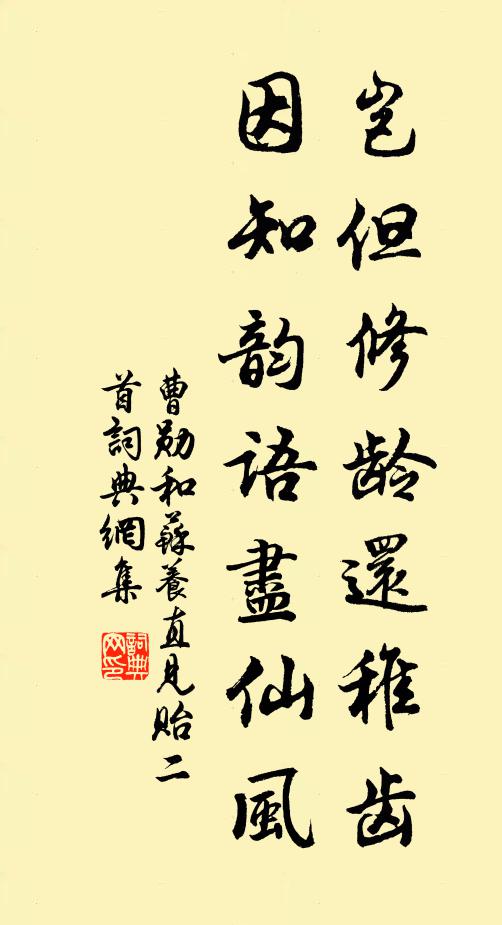 岂但修龄還稚齿
因知韵语盡仙風
曹勋和蘇養直見貽二
首詞典網集
詞典网印